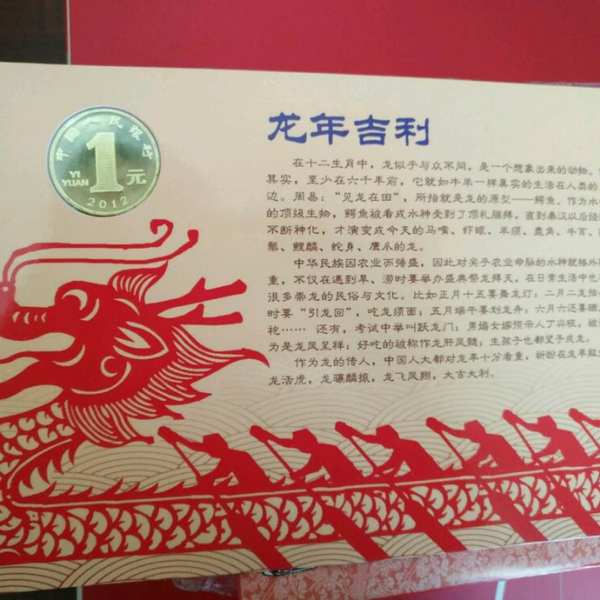 中国人民银行
YI
YUAN
1
元
2012
龙年吉利
在十二生肖中，龙似乎与众不同，是一个想象出来的动物。
其实，至少在六千年前，它就如牛羊一样真实的生活在人类的
边。周易：“见龙在田”，所指就是龙的原型——鳄鱼。作为水
的顶级生物，鳄鱼被看成水神受到了顶礼膜拜，直到秦汉以后
不断神化，才演变成今天的马嘴、虾眼、羊须、鹿角、牛耳、
鬃、鲤鳞、蛇身、鹰爪的龙。
中华民族因农业而隆盛，因此对关乎农业命脉的水神就格外
重，不仅在遇到旱、涝时要举办盛典祭龙拜天，在日常生活中也
很多崇龙的民俗与文化。比如正月十五要舞龙灯；二月二龙
时要“引龙回”，吃龙须面；五月端午要划龙舟；六月六还要晒
袍……还有，考试中举叫跃龙门；男婚女嫁
为是龙凤呈祥；好吃的被称作龙肝凤髓；生孩子也都望子成龙。
作为龙的传人，中国人大都对龙年十分看重，祈盼在龙年
龙活虎，龙骧麟振，龙飞凤翔，大吉大利。